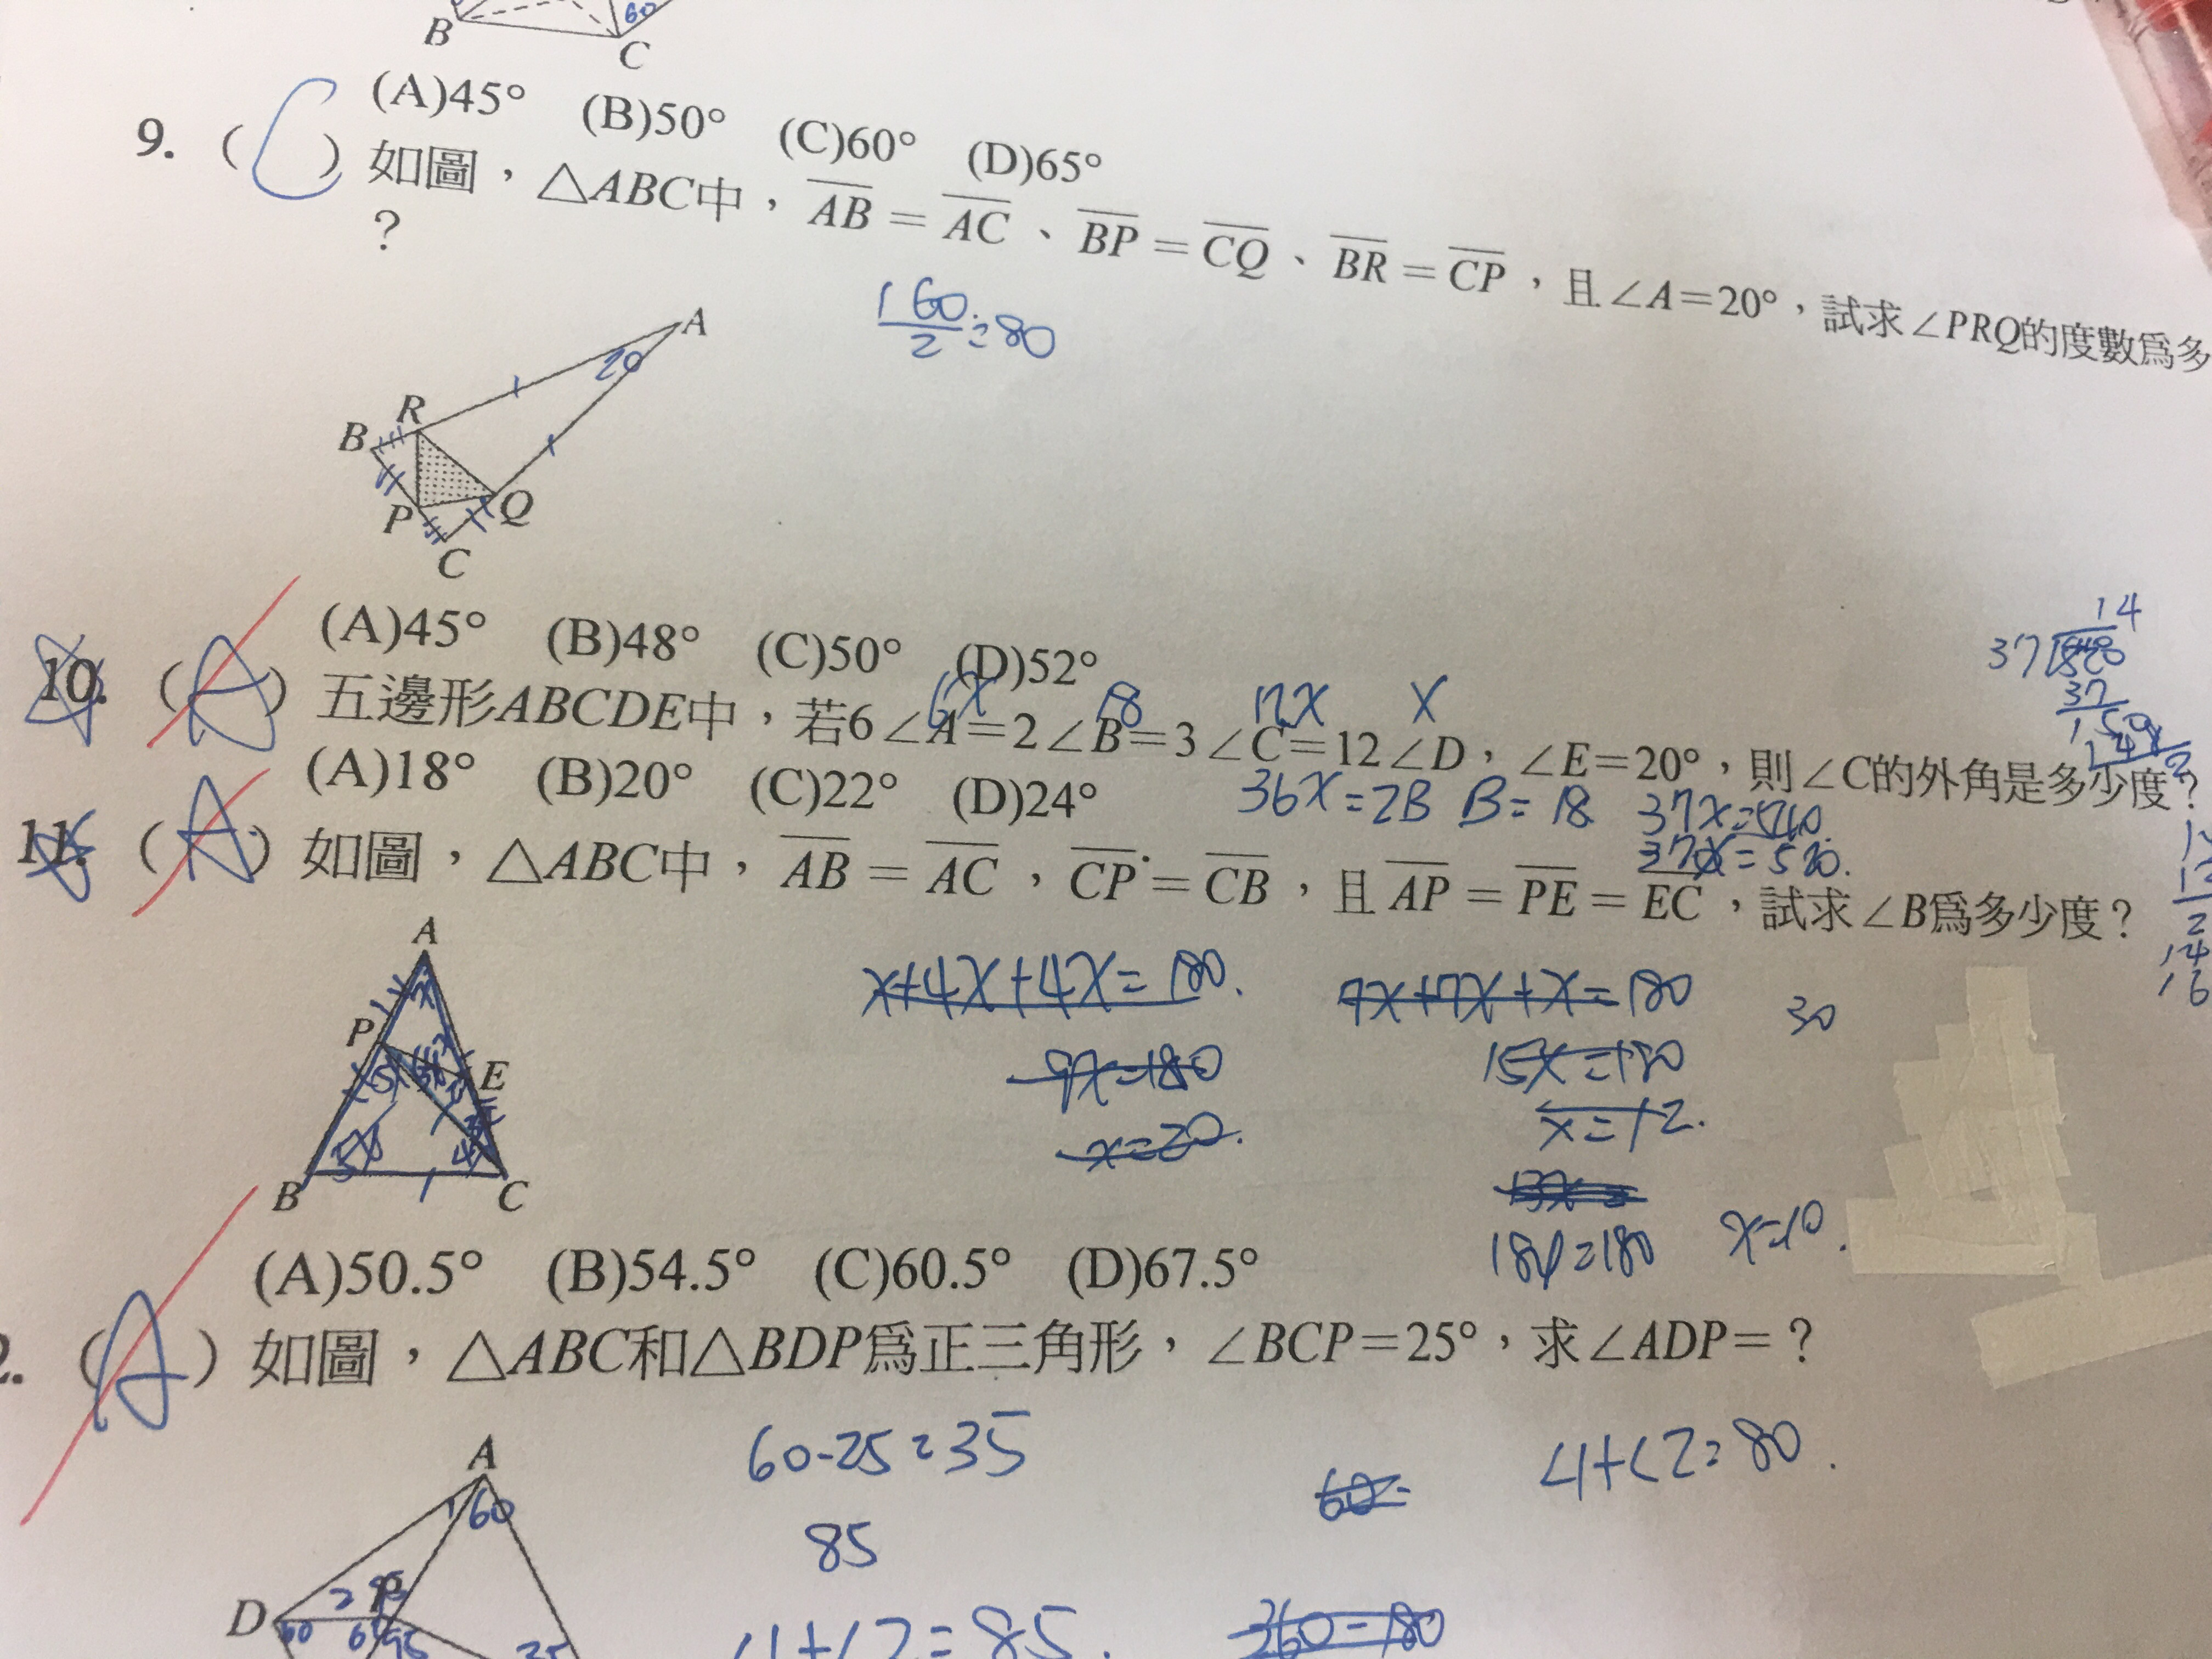 B
C
60
(A)45° (B)50° (C)60° (D)65°
9. ( C ) 如圖，△ABC中，AB＝AC、BP＝CQ、BR＝CP，且∠A＝20°，試求∠PRQ的度數爲多
?
160/2=80
A
20
R
B
Q
P
C
(A)45° (B)48° (C)50° (D)52°
14
37
37
6x 18 12x x
10. ( A ) 五邊形ABCDE中，若6∠A＝2∠B＝3∠C＝12∠D，∠E＝20°，則∠C的外角是多少度？
(A)18° (B)20° (C)22° (D)24°
36x=2B B=18 37x=540
37x=520.
11. ( A ) 如圖，△ABC中，AB＝AC，CP＝CB，且AP＝PE＝EC，試求∠B爲多少度？
A
x
P
E
B
C
x+4x+4x=180.
9x=180
x=20.
7x+7x+x=180
15x=180
x=12.
18x=180
x=10.
30
14
16
(A)50.5° (B)54.5° (C)60.5° (D)67.5°
2. ( A ) 如圖，△ABC和△BDP爲正三角形，∠BCP＝25°，求∠ADP＝？
60-25=35
85
∠1+∠2=85.
60=
∠1+∠2=80.
360-180
A
1 60
D
2
P
60
95
35